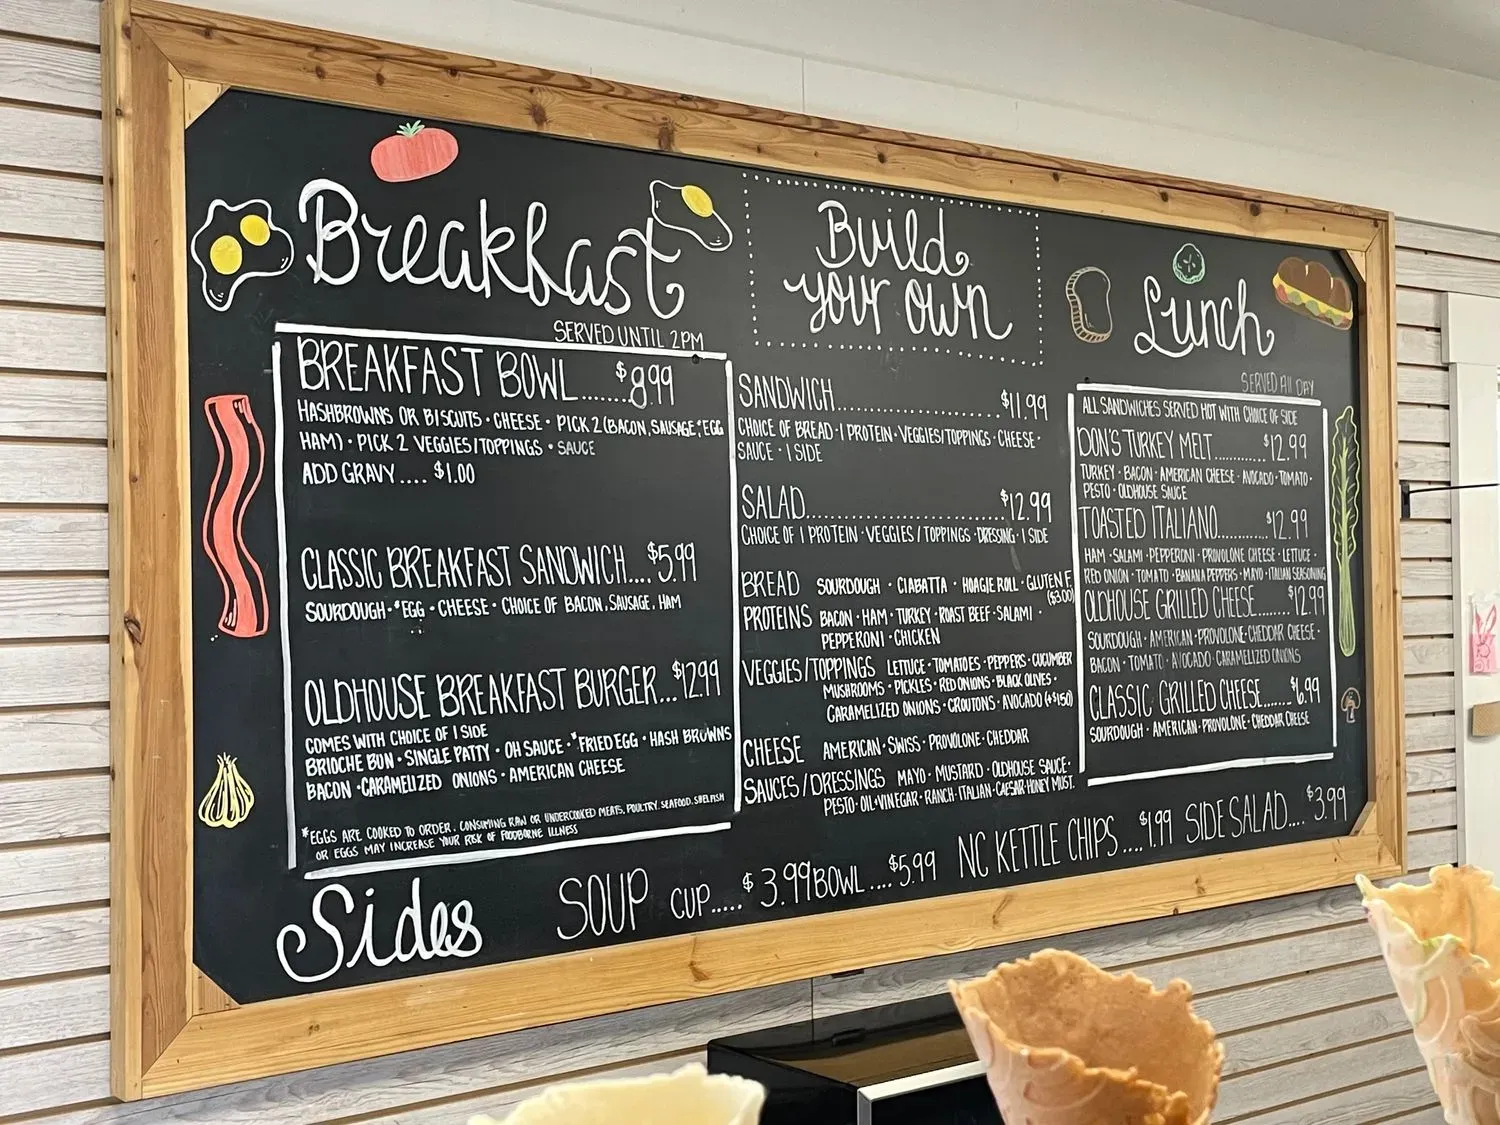 Breakfast
SERVED UNTIL 2PM
BREAKFAST BOWL.......$8.99
HASHBROWNS OR BISCUITS · CHEESE · PICK 2 (BACON, SAUSAGE, *EGG
HAM) · PICK 2 VEGGIES/TOPPINGS · SAUCE
ADD GRAVY .... $1.00
CLASSIC BREAKFAST SANDWICH....$5.99
SOURDOUGH · *EGG · CHEESE · CHOICE OF BACON, SAUSAGE, HAM
OLDHOUSE BREAKFAST BURGER...$12.99
COMES WITH CHOICE OF 1 SIDE
BRIOCHE BUN · SINGLE PATTY · OH SAUCE · *FRIED EGG · HASH BROWNS
BACON · CARAMELIZED ONIONS · AMERICAN CHEESE
*EGGS ARE COOKED TO ORDER. CONSUMING RAW OR UNDERCOOKED MEATS, POULTRY, SEAFOOD, SHELLFISH
OR EGGS MAY INCREASE YOUR RISK OF FOODBORNE ILLNESS
Build
your own
SANDWICH....................$11.99
CHOICE OF BREAD · 1 PROTEIN · VEGGIES/TOPPINGS · CHEESE ·
SAUCE · 1 SIDE
SALAD........................$12.99
CHOICE OF 1 PROTEIN · VEGGIES/TOPPINGS · DRESSING · 1 SIDE
BREAD SOURDOUGH · CIABATTA · HOAGIE ROLL · GLUTEN F.
($3.00)
PROTEINS BACON · HAM · TURKEY · ROAST BEEF · SALAMI ·
PEPPERONI · CHICKEN
VEGGIES/TOPPINGS LETTUCE · TOMATOES · PEPPERS · CUCUMBER
MUSHROOMS · PICKLES · RED ONIONS · BLACK OLIVES ·
CARAMELIZED ONIONS · CROUTONS · AVOCADO (+$1.50)
CHEESE AMERICAN · SWISS · PROVOLONE · CHEDDAR
SAUCES/DRESSINGS MAYO · MUSTARD · OLDHOUSE SAUCE ·
PESTO · OIL+VINEGAR · RANCH · ITALIAN · CAESAR · HONEY MUST.
Lunch
SERVED All DAY
ALL SANDWICHES SERVED HOT WITH CHOICE OF SIDE
DON'S TURKEY MELT............$12.99
TURKEY · BACON · AMERICAN CHEESE · AVOCADO · TOMATO ·
PESTO · OLDHOUSE SAUCE
TOASTED ITALIANO...........$12.99
HAM · SALAMI · PEPPERONI · PROVOLONE CHEESE · LETTUCE ·
RED ONION · TOMATO · BANANA PEPPERS · MAYO · ITALIAN SEASONING
OLDHOUSE GRILLED CHEESE........$12.99
SOURDOUGH · AMERICAN · PROVOLONE · CHEDDAR CHEESE ·
BACON · TOMATO · AVOCADO · CARAMELIZED ONIONS
CLASSIC GRILLED CHEESE.......$6.99
SOURDOUGH · AMERICAN · PROVOLONE · CHEDDAR CHEESE
Sides
SOUP CUP.....$3.99 BOWL ....$5.99 NC KETTLE CHIPS....$1.99 SIDE SALAD....$3.99